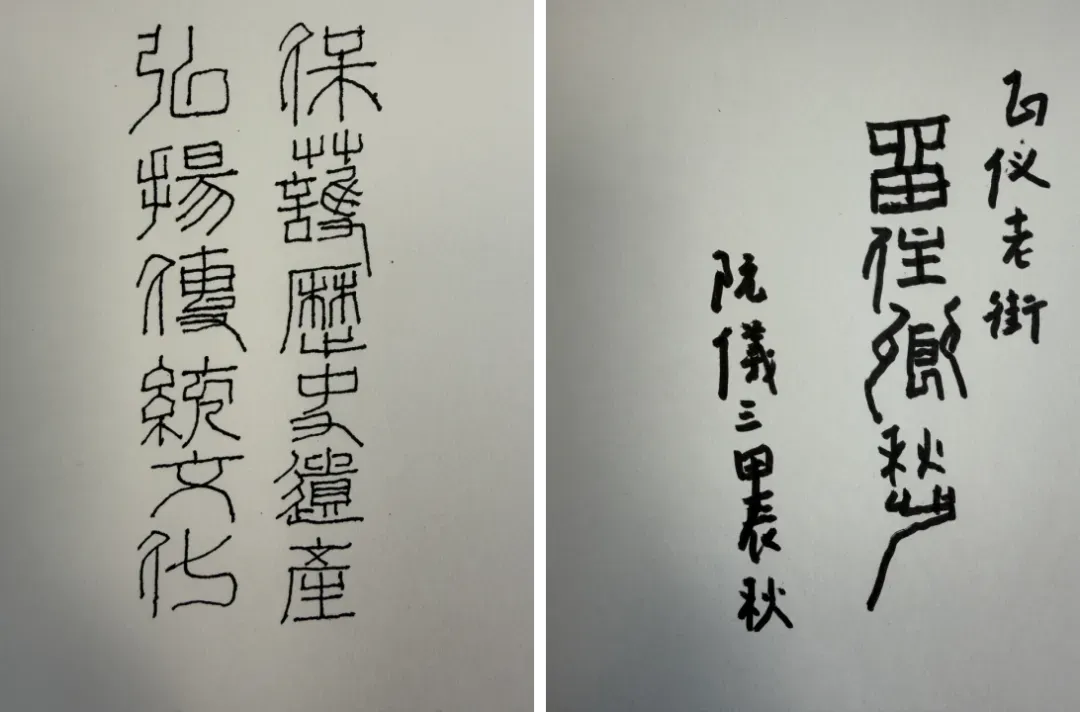 保護歷史遺產
弘揚傳統文化
正仪老街
留住鄉愁
阮儀三甲辰秋